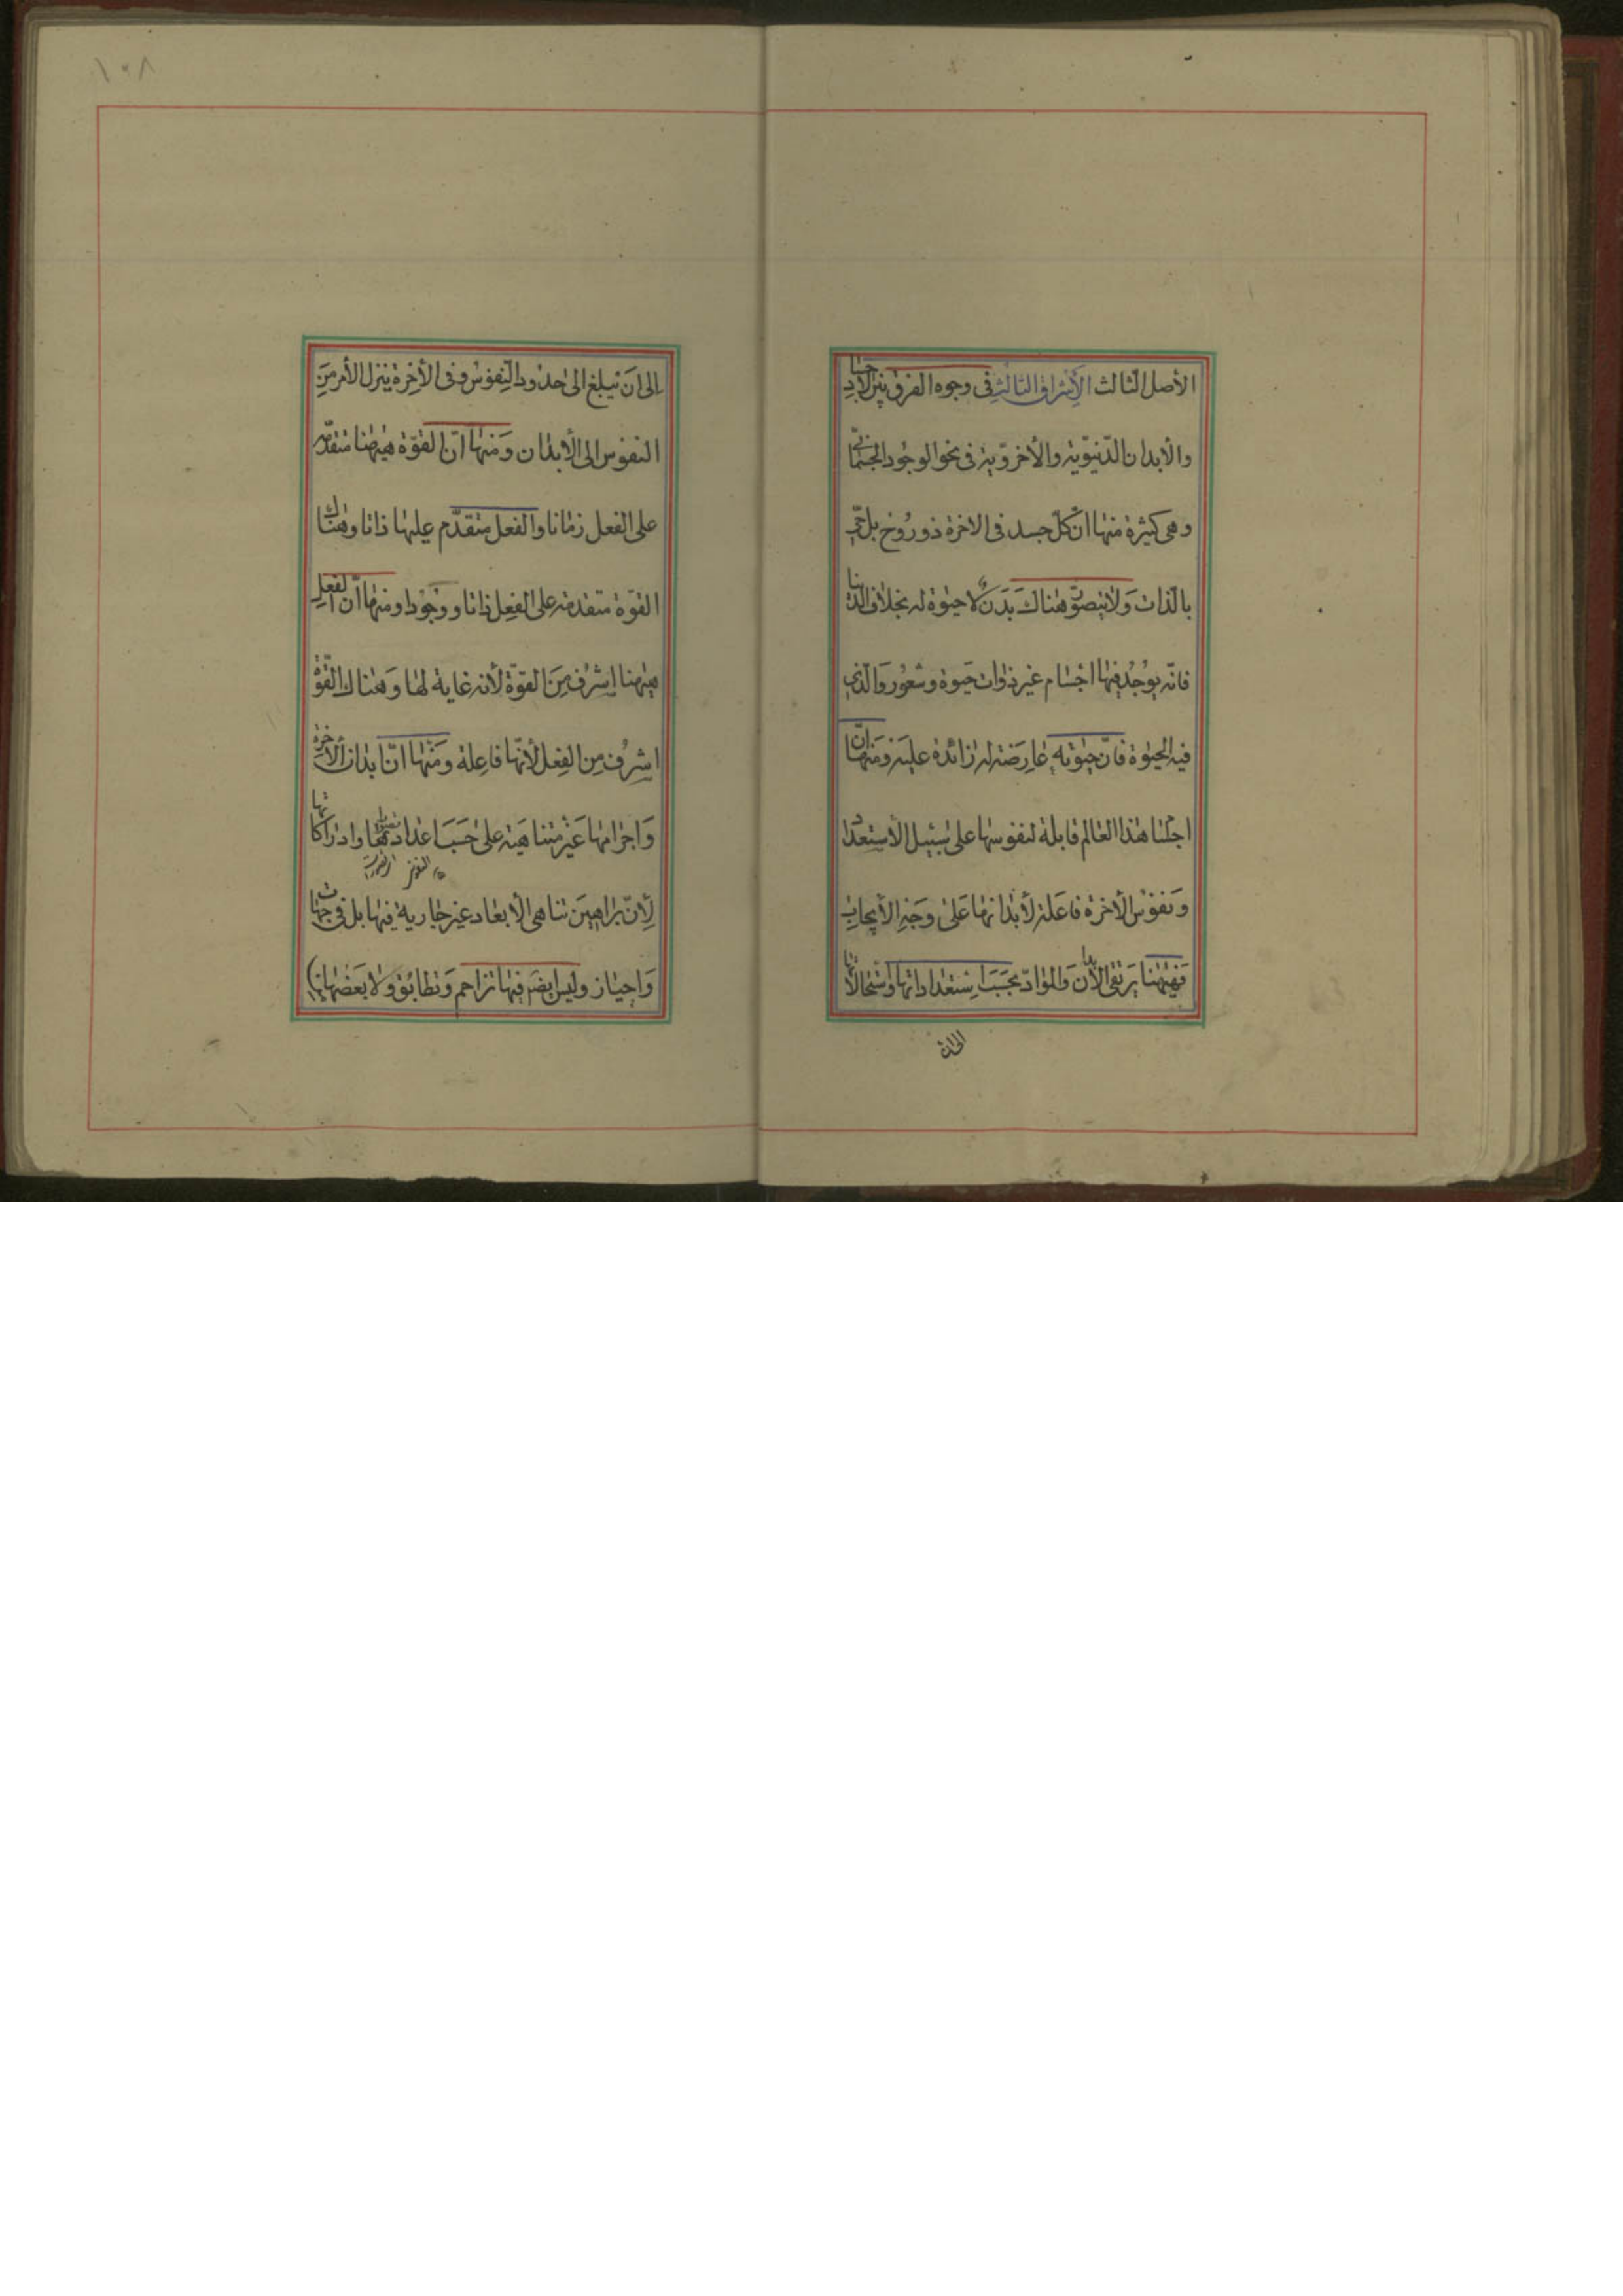 الأصل الثالث الأشراق الثالث فى وجوه الفرق بين الأجساد
والأبدان الدّنيويّة والأخرويّة فى نحو الوجود الجسمانّى
وهى كثيرة منها انّ كلّ جسد فى الاخرة ذو روُح بل حّى
بالذات وَلا يتصوّر هناك بَدَنٌ لا حيوة له بخلاف الدنيا
فانّه يوُجُد فيها اجسام غير ذوات حيوة وشعور وَالّذى
فيه الحيوة فانّ حيوته عارِضَة له زائدة عليَه وَمنهَا انّ
اجسٰاد هٰذا العٰالم قابلة لنفوسها على سَبيل الأستعداد
وَنفوسُ الأخرة فاعلة لأبدانها عَلىٰ وَجَهِ الأيجاب
فَهيٰهنا يَرتقى الأبدان وَالموٰادّ بحَسَب اِستعدٰاداتها وَاستحالاتها
الى ان تبلغ الىٰ حدود النّفوس وفى الأخِرة ينزل الأمر مِنَ
النفوس الى الأبدٰان وَمنهٰا انّ القوّة هيٰهنا متقدّمة
على الفعل زمٰانا والفعل متقدّم عليهٰا ذاتا وَهناك
القوّة متقدمة على الفِعل ذاتا ووجُودا ومنهٰا انّ الفعل
هيٰهنا اشرف مِنَ القوّة لأنه غاية لها وَهناك القّوة
اشرُف مِن الفِعل لأنّها فاعِلة وَمنهٰا انّ ابدٰان الأخرة
وَاجرٰامهٰا غَيْر متناهيَة علىٰ حَسَب اعدٰاد تصوّراتها وادرٰاكاتها
النفوس
لِأنّ برٰاهِيَن تناهى الأبعاد غير جٰارية فيهٰا بل فى جهات
وَاحيٰاز وليسَ ايضَاً فيهٰا تزاحم وَتطابق وَلا بَعضهٰا